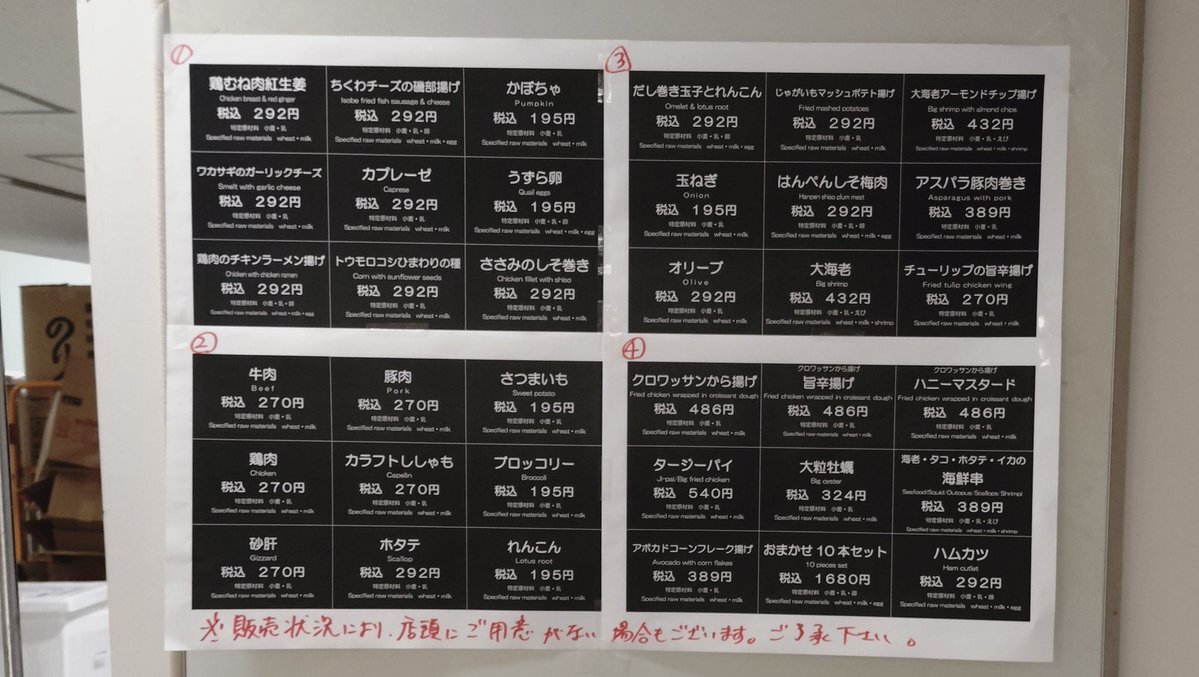 ①
鶏むね肉紅生姜
Chicken breast & red ginger
税込 292円
特定原材料 小麦・乳
Specified raw materials wheat・milk
ちくわチーズの磯部揚げ
Isobe fried fish sausage & cheese
税込 292円
特定原材料 小麦・乳・卵
Specified raw materials wheat・milk・egg
かぼちゃ
Pumpkin
税込 195円
特定原材料 小麦・乳
Specified raw materials wheat・milk
ワカサギのガーリックチーズ
Smelt with garlic cheese
税込 292円
特定原材料 小麦・乳
Specified raw materials wheat・milk
カプレーゼ
Caprese
税込 292円
特定原材料 小麦・乳
Specified raw materials wheat・milk
うずら卵
Quail eggs
税込 195円
特定原材料 小麦・乳・卵
Specified raw materials wheat・milk・egg
鶏肉のチキンラーメン揚げ
Chicken with chicken ramen
税込 292円
特定原材料 小麦・乳・卵
Specified raw materials wheat・milk・egg
トウモロコシひまわりの種
Corn with sunflower seeds
税込 292円
特定原材料 小麦・乳
Specified raw materials wheat・milk
ささみのしそ巻き
Chicken fillet with shiso
税込 292円
特定原材料 小麦・乳
Specified raw materials wheat・milk
②
牛肉
Beef
税込 270円
特定原材料 小麦・乳
Specified raw materials wheat・milk
豚肉
Pork
税込 270円
特定原材料 小麦・乳
Specified raw materials wheat・milk
さつまいも
Sweet potato
税込 195円
特定原材料 小麦・乳
Specified raw materials wheat・milk
鶏肉
Chicken
税込 270円
特定原材料 小麦・乳
Specified raw materials wheat・milk
カラフトししゃも
Capelin
税込 270円
特定原材料 小麦・乳
Specified raw materials wheat・milk
ブロッコリー
Broccoli
税込 195円
特定原材料 小麦・乳
Specified raw materials wheat・milk
砂肝
Gizzard
税込 270円
特定原材料 小麦・乳
Specified raw materials wheat・milk
ホタテ
Scallop
税込 292円
特定原材料 小麦・乳
Specified raw materials wheat・milk
れんこん
Lotus root
税込 195円
特定原材料 小麦・乳
Specified raw materials wheat・milk
③
だし巻き玉子とれんこん
Omelet & lotus root
税込 292円
特定原材料 小麦・乳・卵
Specified raw materials wheat・milk・egg
じゃがいもマッシュポテト揚げ
Fried mashed potatoes
税込 292円
特定原材料 小麦・乳
Specified raw materials wheat・milk
大海老アーモンドチップ揚げ
Big shrimp with almond chips
税込 432円
特定原材料 小麦・乳・えび
Specified raw materials wheat・milk・shrimp
玉ねぎ
Onion
税込 195円
特定原材料 小麦・乳
Specified raw materials wheat・milk
はんぺんしそ梅肉
Hanpen shiso plum meat
税込 292円
特定原材料 小麦・乳・卵
Specified raw materials wheat・milk・egg
アスパラ豚肉巻き
Asparagus with pork
税込 389円
特定原材料 小麦・乳
Specified raw materials wheat・milk
オリーブ
Olive
税込 292円
特定原材料 小麦・乳
Specified raw materials wheat・milk
大海老
Big shrimp
税込 432円
特定原材料 小麦・乳・えび
Specified raw materials wheat・milk・shrimp
チューリップの旨辛揚げ
Fried tulip chicken wing
税込 270円
特定原材料 小麦・乳
Specified raw materials wheat・milk
④
クロワッサンから揚げ
Fried chicken wrapped in croissant dough
税込 486円
特定原材料 小麦・乳
Specified raw materials wheat・milk
クロワッサンから揚げ
旨辛揚げ
Fried chicken wrapped in croissant dough
税込 486円
特定原材料 小麦・乳
Specified raw materials wheat・milk
クロワッサンから揚げ
ハニーマスタード
Fried chicken wrapped in croissant dough
税込 486円
特定原材料 小麦・乳
Specified raw materials wheat・milk
タージーパイ
Ji-pai/Big fried chicken
税込 540円
特定原材料 小麦・乳
Specified raw materials wheat・milk
大粒牡蠣
Big oyster
税込 324円
特定原材料 小麦・乳
Specified raw materials wheat・milk
海老・タコ・ホタテ・イカの
海鮮串
Seafood(Squid/Outopus/Scallops/Shrimp)
税込 389円
特定原材料 小麦・乳・えび
Specified raw materials wheat・milk・shrimp
アボカドコーンフレーク揚げ
Avocado with corn flakes
税込 389円
特定原材料 小麦・乳
Specified raw materials wheat・milk
おまかせ10本セット
10 pieces set
税込 1680円
特定原材料 小麦・乳・卵
Specified raw materials wheat・milk・egg
ハムカツ
Ham cutlet
税込 292円
特定原材料 小麦・乳・卵
Specified raw materials wheat・milk・egg
※販売状況により、店頭にご用意がない場合もございます。ご了承下さい。